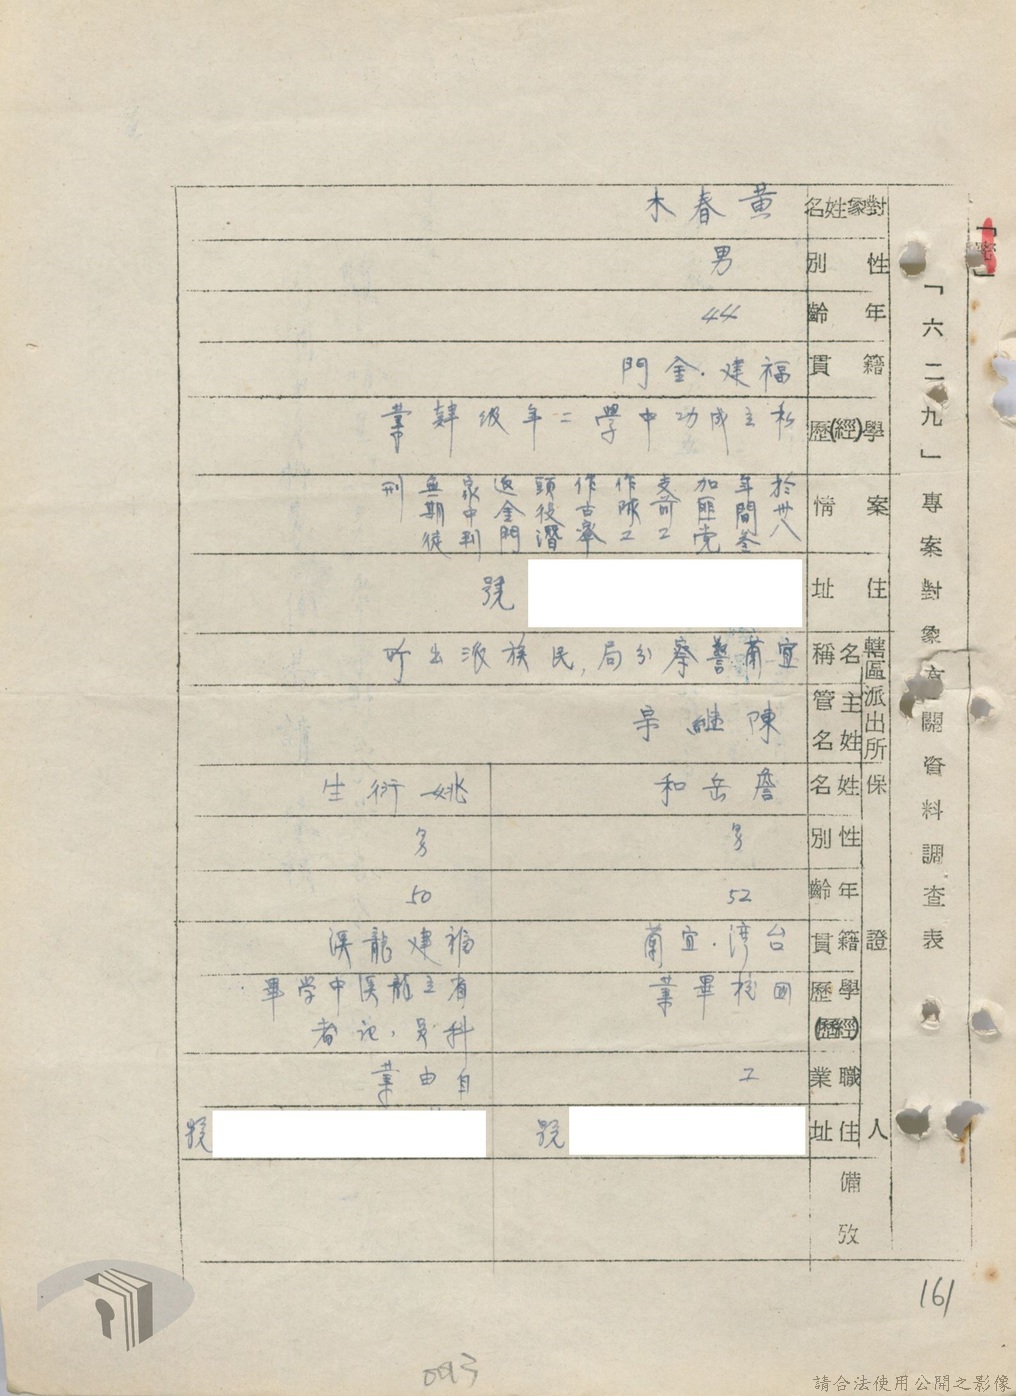 「密」
「六二九」專案對象有關資料調查表
對象姓名 黃春木
性別 男
年齡 44
籍貫 福建.金門
學(經)歷 私立成功中學二年級肄業
案情 於卅八年間參加匪党支前工作隊工作古寧頭役潛返金門家中判無期徒刑
住址 號
轄區派出所
名稱 宜蘭警察分局,民族派出所
主管姓名 陳繼
保證人
姓名 詹岳和 姚衍生
性別 男 男
年齡 52 50
籍貫 台湾.宜蘭 福建龍溪
學(經)歷 國校畢業 省立龍溪中学畢
科員,記者
職業 工 自由業
住址 號 號
備攷
161
0093
請合法使用公開之影像